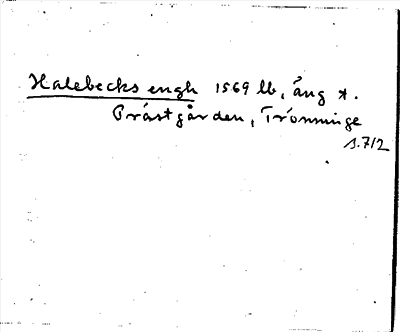 Halebecks engh 1569 lb, äng t.
Prästgården, Trönninge
s. 712